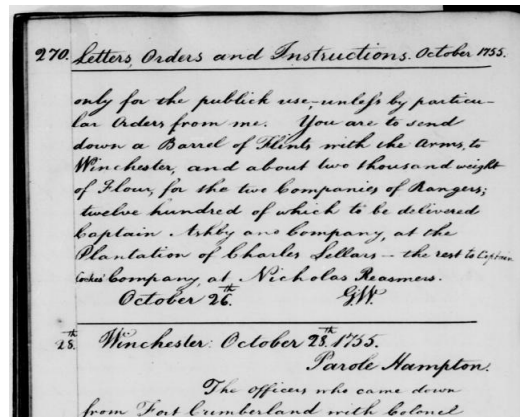 270. Letters, Orders and Instructions. October 1755.
only for the publick use, unless by particu-
lar Orders from me. You are to send
down a Barrel of Flints with the Arms, to
Winchester, and about two thousand weight
of Flour, for the two Companies of Rangers;
twelve hundred of which to be delivered
Captain Ashby and Company, at the
Plantation of Charles Sellars — the rest to Captain
Cockes Company, at Nicholas Reasmers.
October 26th. G.W.
28th. Winchester: October 28th. 1755.
Parole Hampton.
The officers who came down
from Fort Cumberland with Colonel